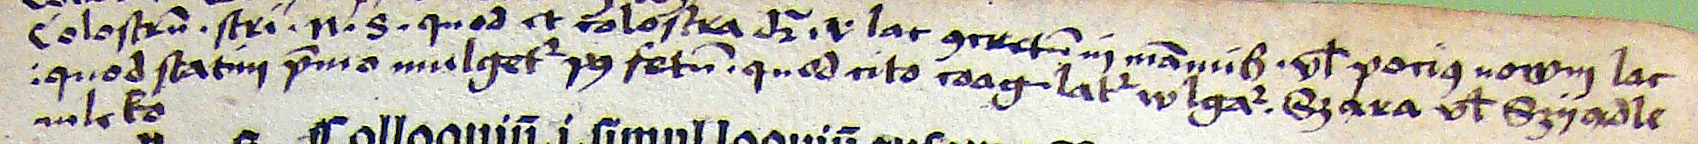 Colostrū · stri · n · s · quod et colostra dr̄ · i · lac ꝯcretū in māmis · vl̄ pocius nowm lac
· quod statim pͥmo mulgetᷣ pꝰ fetū · quod cito coagulatᷣ wlgaᷣ · Szara vl̄ Szyadle
mleko
Colloquiū · i · simul loquiū